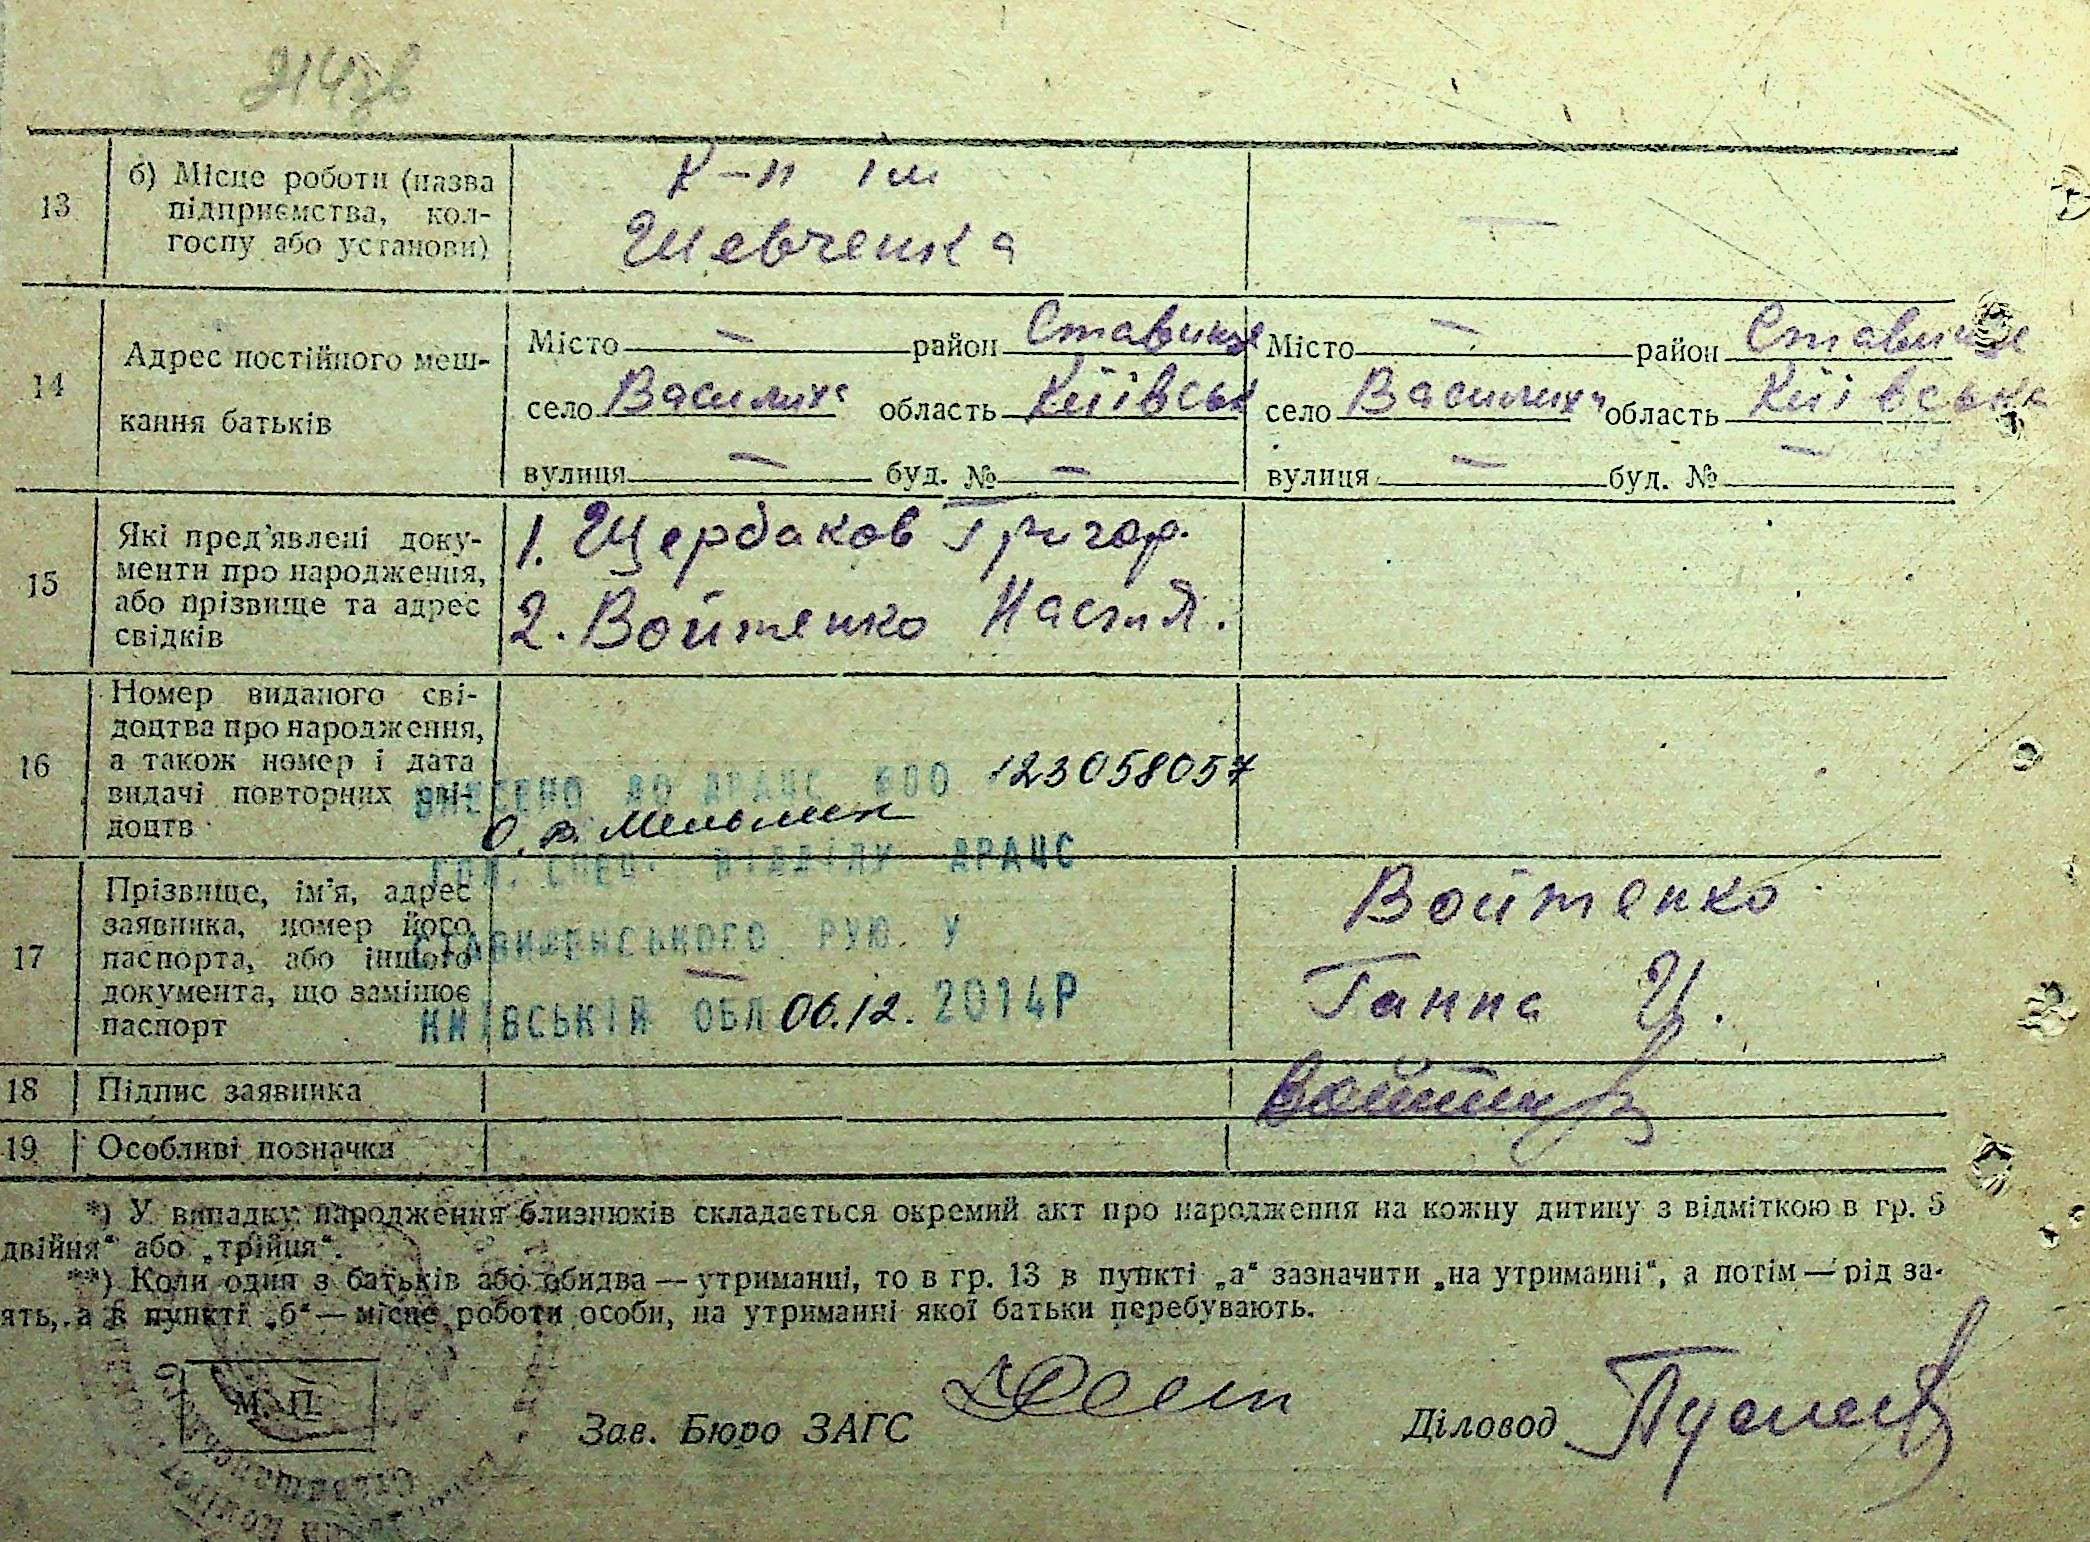 13
б) Місце роботи (назва
підприємства, кол-
госпу або установи)
К-п ім
Шевченка
—
14
Адрес постійного меш-
кання батьків
Місто — район Ставище
село Василиха область Київськ
вулиця — буд. № —
Місто — район Ставище
село Василиха область Київська
вулиця — буд. № —
15
Які пред'явлені доку-
менти про народження,
або прізвище та адрес
свідків
1. Щербаков Григор.
2. Войтенко Настя.
16
Номер виданого сві-
доцтва про народження,
а також номер і дата
видачі повторних сві-
доцтв
ВНЕСЕНО ДО ДРАЦС 00123058057
О. В. Мельник
ГОЛ. СПЕЦ. ВІДДІЛУ ДРАЦС
СТАВИЩЕНСЬКОГО РУЮ У
КИЇВСЬКІЙ ОБЛ 06.12.2014Р
17
Прізвище, ім'я, адрес
заявника, номер його
паспорта, або іншого
документа, що замінює
паспорт
—
Войтенко
Ганна И.
18
Підпис заявника
19
Особливі позначки
*) У випадку народження близнюків складається окремий акт про народження на кожну дитину з відміткою в гр. 5
двійня" або „трійця".
**) Коли один з батьків або обидва — утриманці, то в гр. 13 в пункті „а" зазначити „на утриманні", а потім — рід за-
ять, а в пункті „б" — місце роботи особи, на утриманні якої батьки перебувають.
М. П.
Зав. Бюро ЗАГС
Діловод